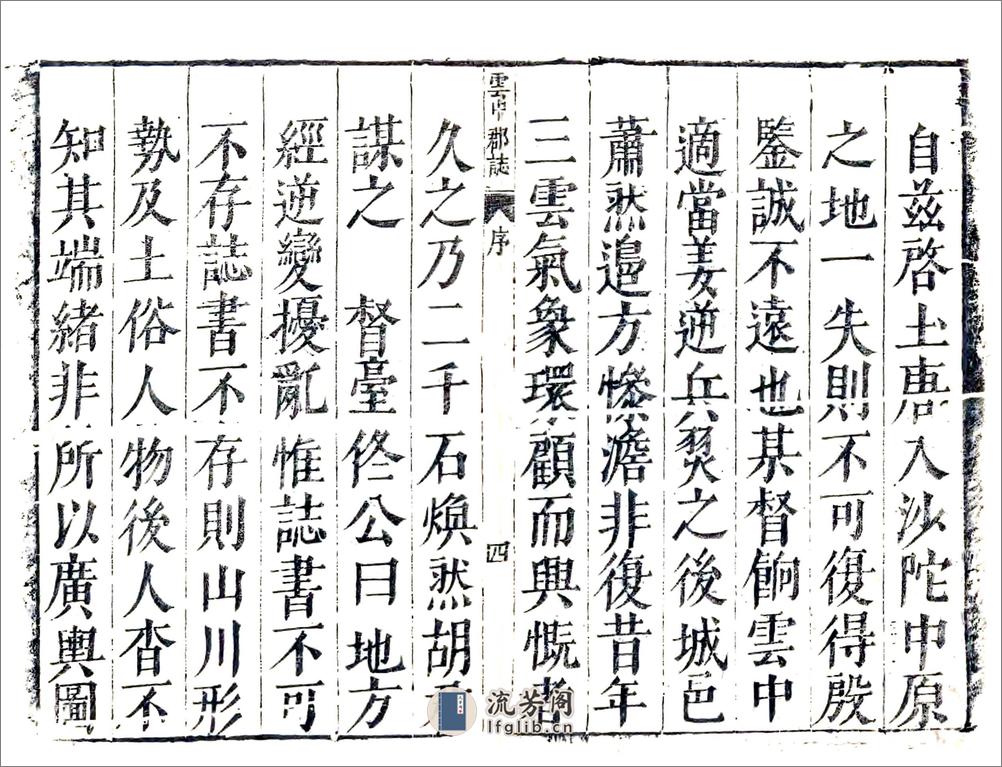 自兹啓土唐入沙陀中原
之地一失則不可復得殷
鑒誠不遠也某督餉雲中
適當姜逆兵燹之後城邑
蕭然邉方慘澹非復昔年
三雲氣象環顧而興慨者
雲中郡誌
序
四
久之乃二千石煥然胡
謀之 督臺佟公曰地方
經逆變擾亂惟誌書不可
不存誌書不存則山川形
勢及土俗人物後人杳不
知其端緒非所以廣輿圖
流芳阁
lfglib.cn